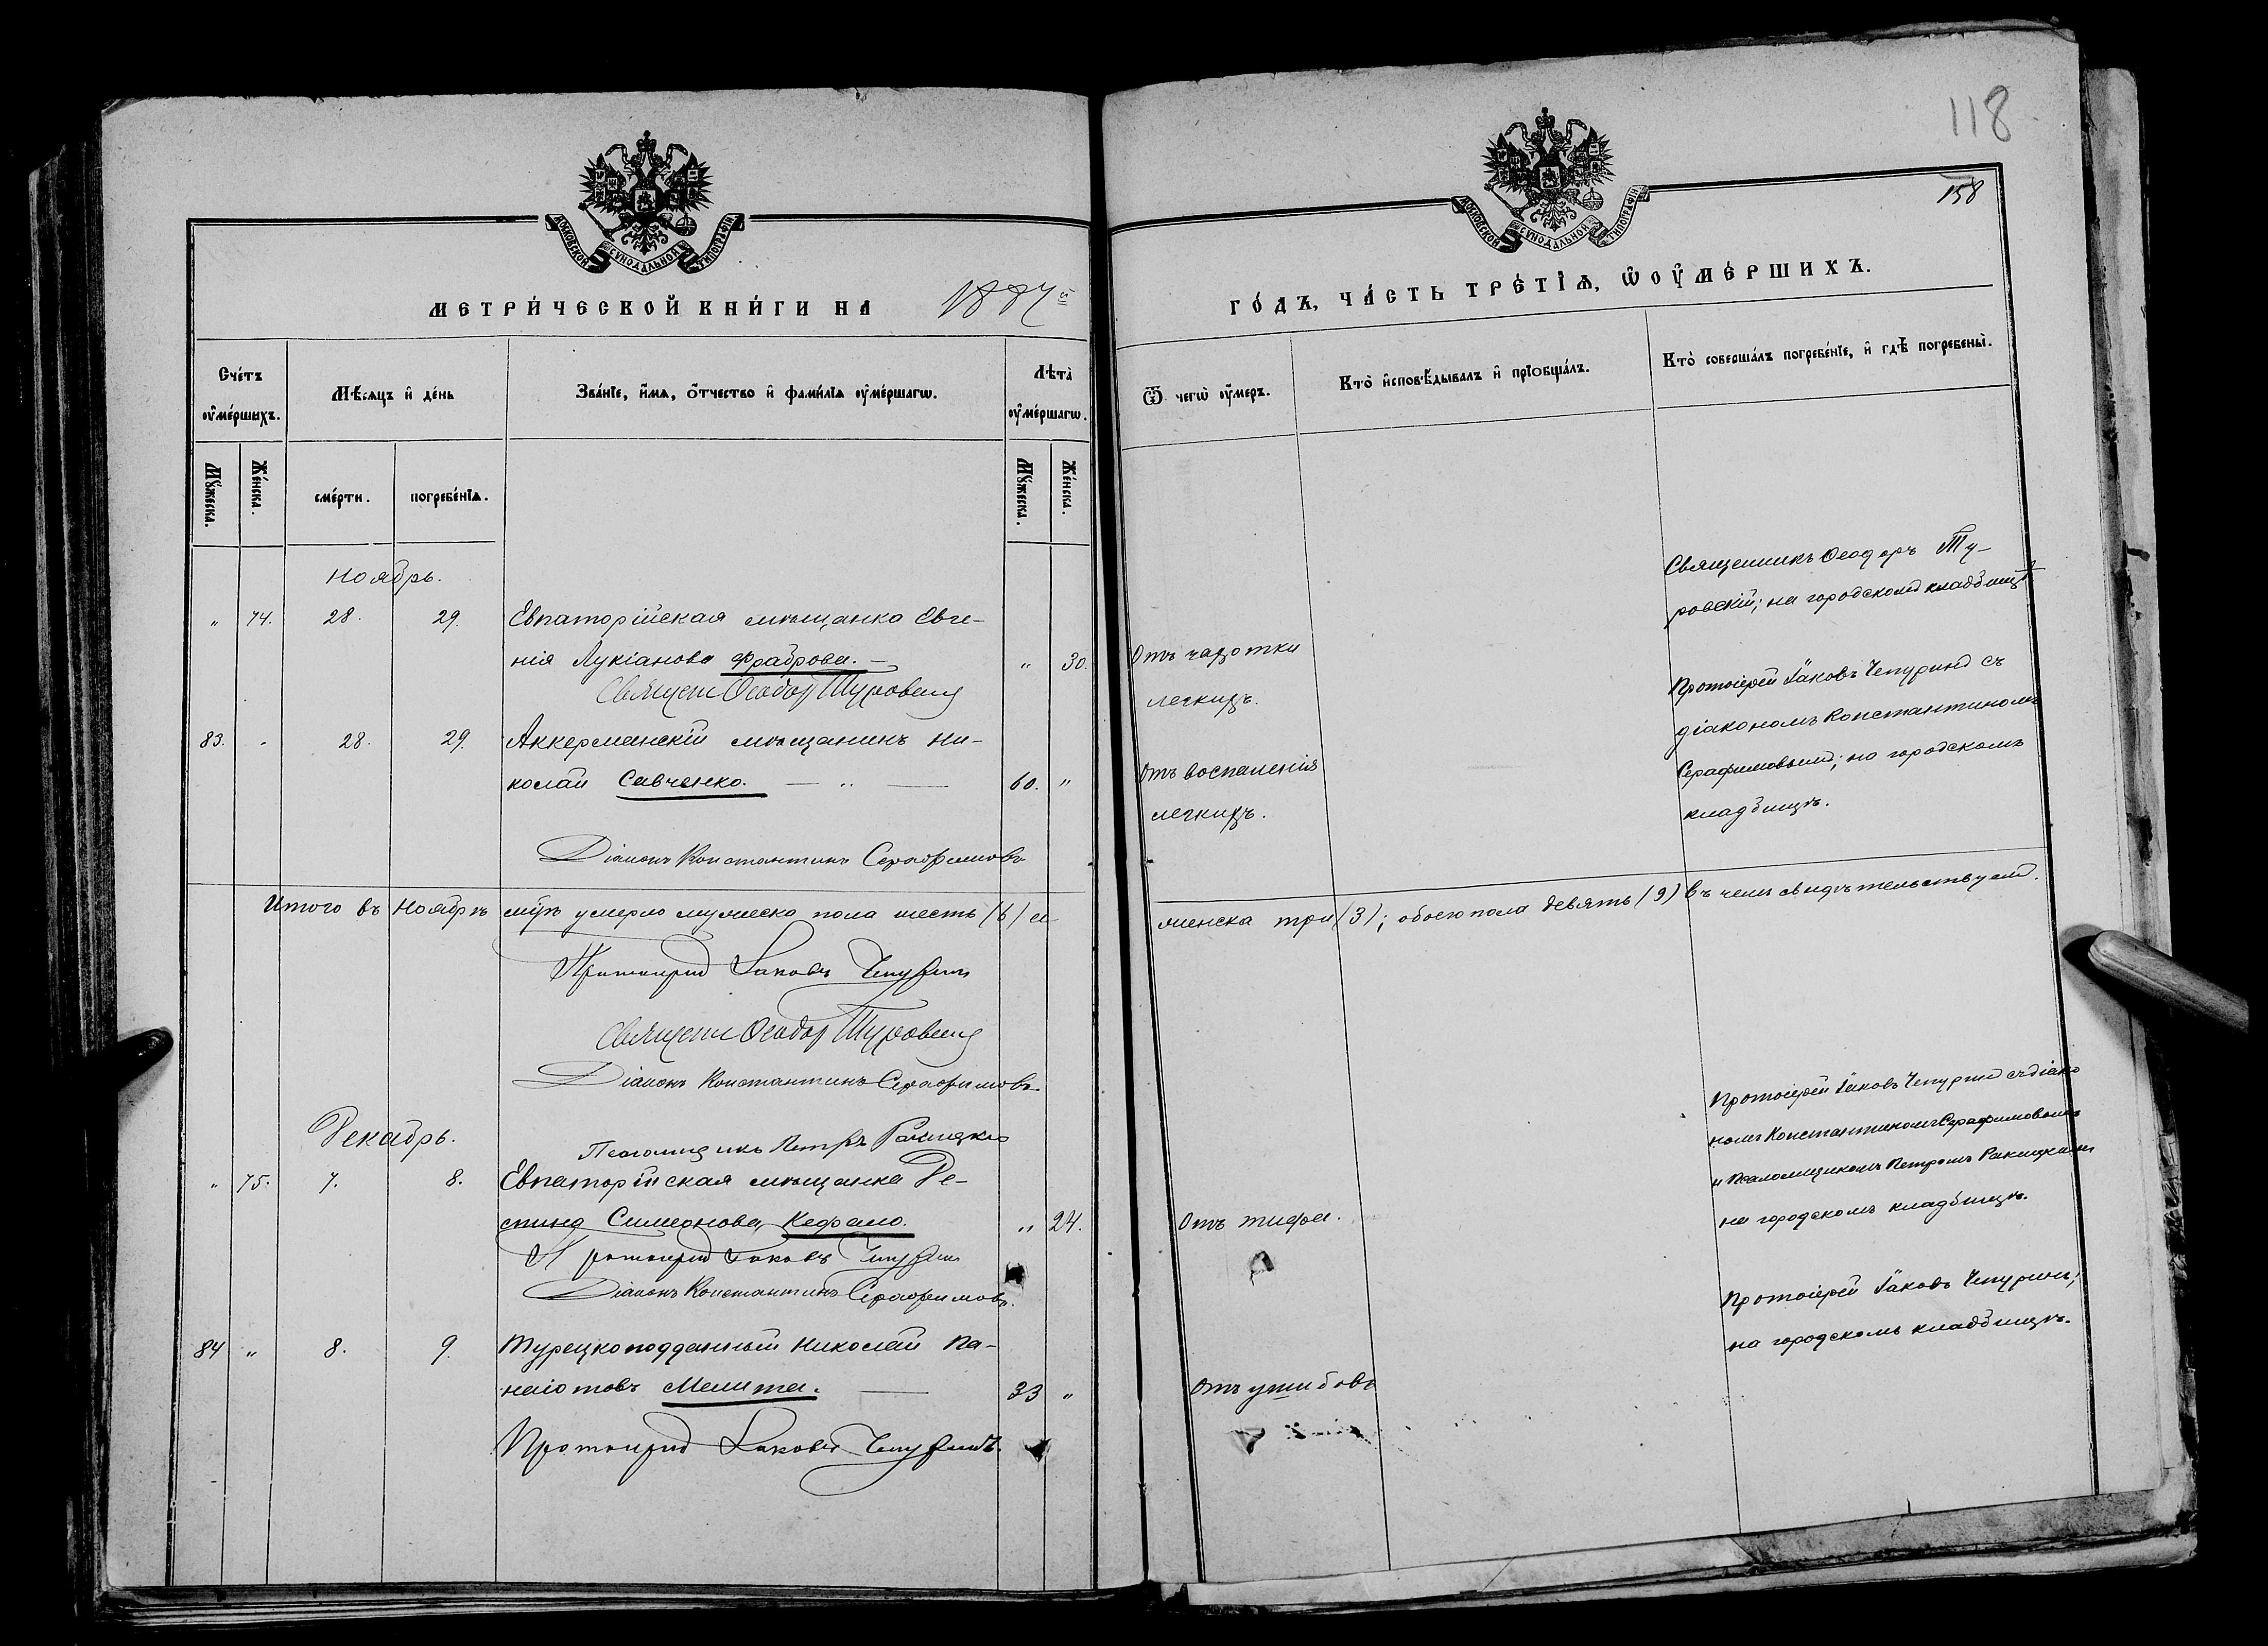 118
158
МОСКОВСКОЙ СѴНОДАЛЬНОЙ ТИПОГРАФІИ
МЕТРИ́ЧЕСКОЙ КНИ́ГИ НА 1887й
Сче́тъ ᲂу҆ме́ршихъ.
Мѣ́сяцъ и҆ де́нь
Зва́нїе, и҆́мѧ, ѻ҆́тчество и҆ фами́лїѧ ᲂу҆ме́ршагѡ.
Лѣта̀ ᲂу҆ме́ршагѡ.
Мꙋ́жеска.
Же́нска.
сме́рти.
погребе́нїѧ.
Мꙋ́жеска.
Же́нска.
Ноябрь.
" 74. 28. 29. Евпаторійская мѣщанка Евге-
нія Лукіанова Фраброва. — " 30.
Священ Ѳеодор Туровскій
83. " 28. 29. Аккерманскій мѣщанинъ Ни-
колай Савченко. — " — 60. "
Діаконъ Константинъ Серафимовъ
Итого въ Ноябрѣ мцѣ умерло мужеска пола шесть (6) а
Протоіерей Іаковъ Чепуринъ
Священ Ѳеодор Туровскій
Діаконъ Константинъ Серафимовъ
Декабрь.
Псаломщикъ Петръ Ракицкій
" 75. 7. 8. Евпаторійская мѣщанка Де-
спина Симеонова Кефало. " 24.
Протоіерей Іаковъ Чепуринъ
Діаконъ Константинъ Серафимовъ.
84 " 8. 9. Турецкоподданный Николай Па-
наіотовъ Мелита. — 33 "
Протоіерей Іаковъ Чепуринъ.
МОСКОВСКОЙ СѴНОДАЛЬНОЙ ТИПОГРАФІИ
ГО́ДЪ, ЧА́СТЬ ТРЕ́ТЇѦ, Ѡ҆ ОУ҆МЕ́РШИХЪ.
Ѿ чегѡ̀ ᲂу҆́меръ.
Кто̀ и҆сповѣ́дывалъ и҆ прїобща́лъ.
Кто̀ соверша́лъ погребе́нїе, и҆ гдѣ̀ погребены̀.
Священникъ Ѳеодоръ Ту-
ровскій; на городскомъ кладбищѣ
Отъ чахотки
легкихъ.
Протоіерей Іаковъ Чепуринъ съ
діакономъ Константиномъ
Серафимовымъ; на городскомъ
кладбищѣ.
Отъ воспаленія
легкихъ.
женска три (3); обоего пола девять (9) въ чемъ свидѣтельствуемъ.
Протоіерей Іаковъ Чепуринъ съ діако
номъ Константиномъ Серафимовымъ
и Псаломщикомъ Петромъ Ракицкимъ
на городскомъ кладбищѣ.
Отъ тифа.
Протоіерей Іаковъ Чепуринъ;
на городскомъ кладбищѣ.
Отъ ушибовъ